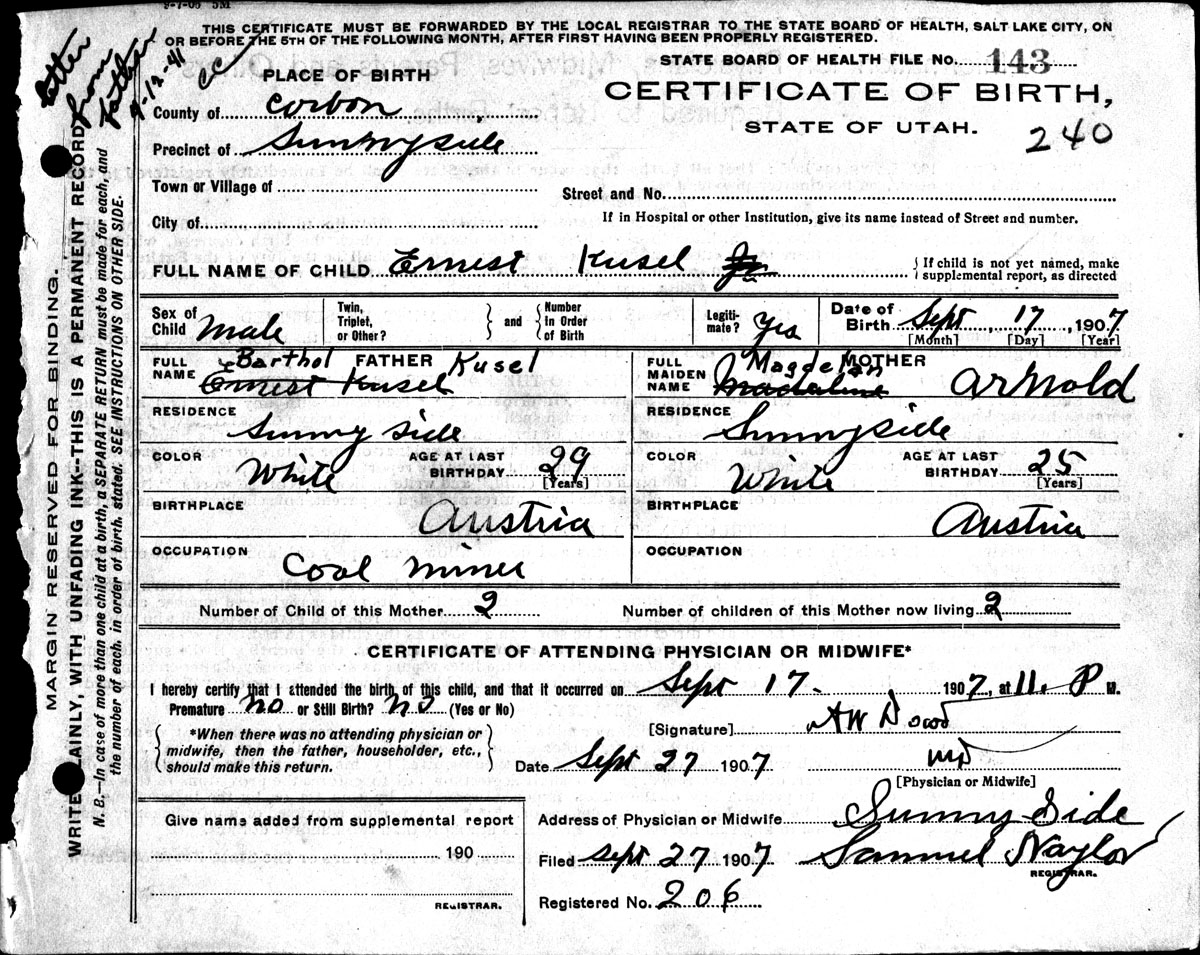 9-7-05 5M
THIS CERTIFICATE MUST BE FORWARDED BY THE LOCAL REGISTRAR TO THE STATE BOARD OF HEALTH, SALT LAKE CITY, ON
OR BEFORE THE 5TH OF THE FOLLOWING MONTH, AFTER FIRST HAVING BEEN PROPERLY REGISTERED.
letter
from
father
9-12-41
cc
STATE BOARD OF HEALTH FILE No. 143
CERTIFICATE OF BIRTH,
STATE OF UTAH.
240
PLACE OF BIRTH
County of Corbon
Precinct of Sunnyside
Town or Village of
Street and No.
City of
If in Hospital or other Institution, give its name instead of Street and number.
FULL NAME OF CHILD Ernest Kusel Jr
If child is not yet named, make
supplemental report, as directed
Sex of Child Male
Twin, Triplet, or Other? and Number In Order of Birth
Legitimate? Yes
Date of Birth Sept, 17, 1907
[Month] [Day] [Year]
FATHER
FULL NAME Barthol Kusel
Ernest Kusel
RESIDENCE Sunny Side
COLOR White
AGE AT LAST BIRTHDAY 29 [Years]
BIRTHPLACE Austria
OCCUPATION Coal Miner
MOTHER
FULL MAIDEN NAME Magdelan Arnold
Madaline
RESIDENCE Sunnyside
COLOR White
AGE AT LAST BIRTHDAY 25 [Years]
BIRTHPLACE Austria
OCCUPATION
Number of Child of this Mother 2
Number of children of this Mother now living 2
CERTIFICATE OF ATTENDING PHYSICIAN OR MIDWIFE*
I hereby certify that I attended the birth of this child, and that it occurred on Sept 17. 1907, at 11. P M.
Premature No or Still Birth? No (Yes or No)
*When there was no attending physician or
midwife, then the father, householder, etc.,
should make this return.
[Signature] AW Dowd
MD
Date Sept 27 1907
[Physician or Midwife]
Give name added from supplemental report
190
REGISTRAR.
Address of Physician or Midwife Sunny Side
Filed Sept 27 1907 Samuel Naylor
REGISTRAR.
Registered No. 206
MARGIN RESERVED FOR BINDING.
WRITE PLAINLY, WITH UNFADING INK--THIS IS A PERMANENT RECORD
N. B.--In case of more than one child at a birth, a SEPARATE RETURN must be made for each, and
the number of each, in order of birth, stated. SEE INSTRUCTIONS ON OTHER SIDE.